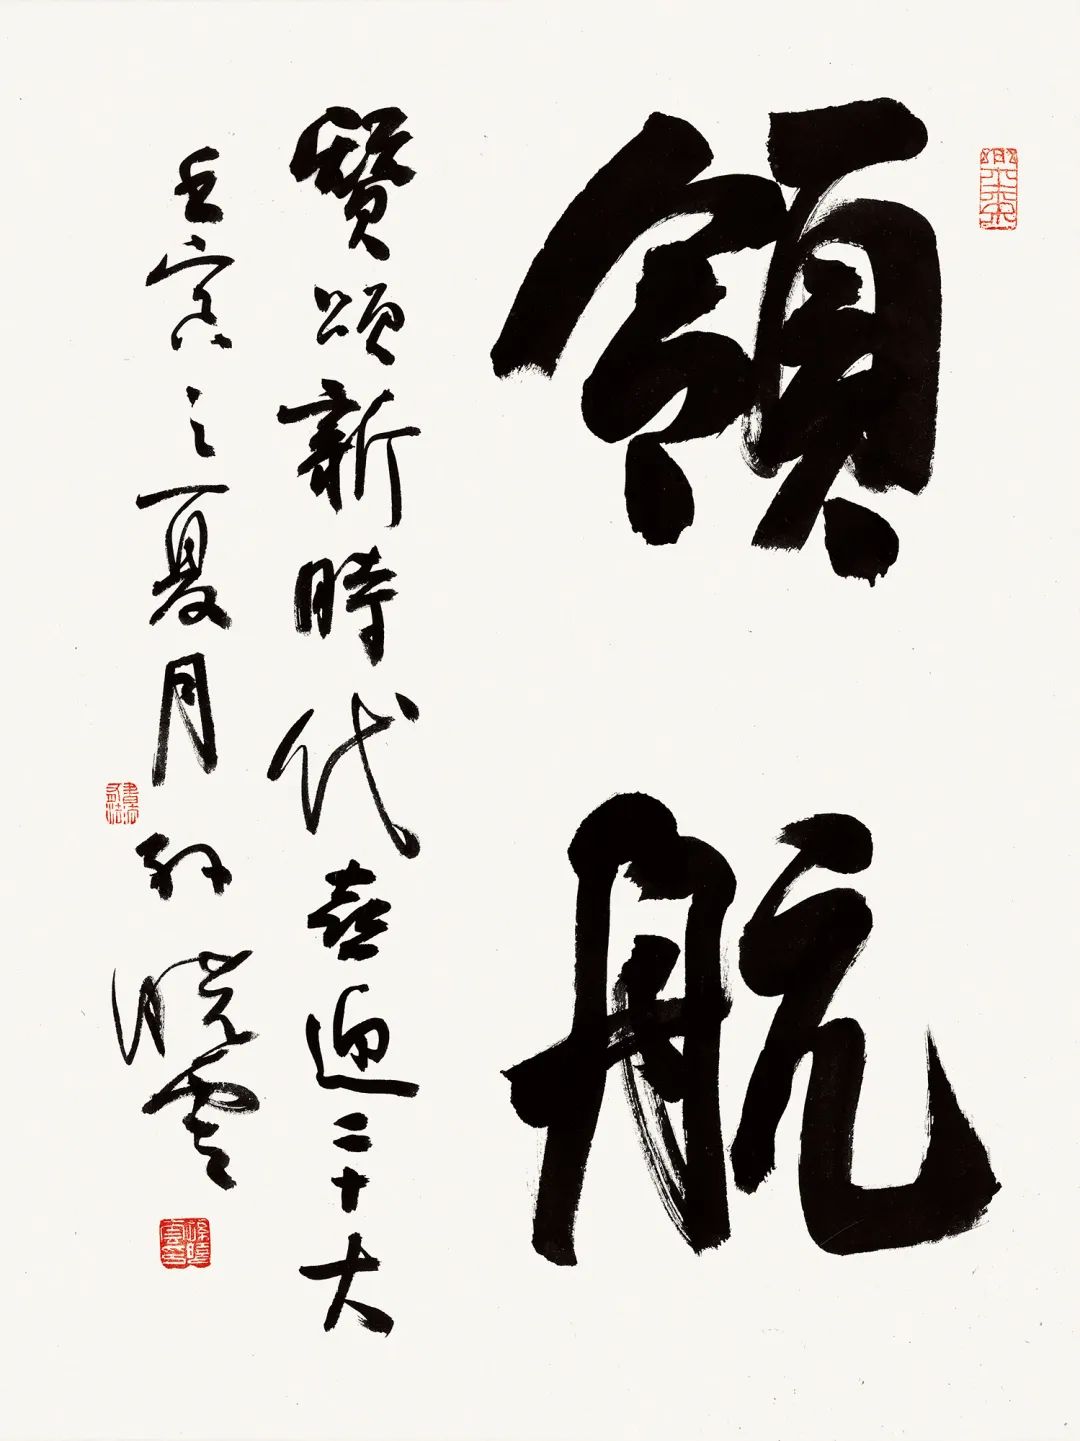 領航
贊頌新時代喜迎二十大
壬寅之夏月孫曉雲